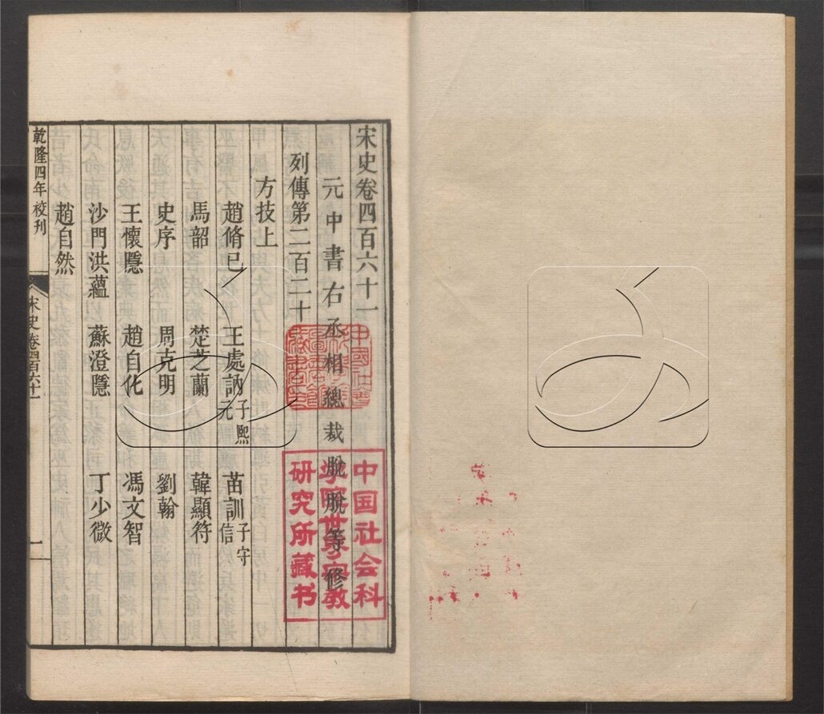 宋史卷四百六十一
元中書右丞相總裁脫脫等修
列傳第二百二十
方技上
趙脩已 王處訥 子熙元 苗訓 子守信
馬韶 楚芝蘭 韓顯符
史序 周克明 劉翰
王懷隱 趙自化 馮文智
沙門洪蘊 蘇澄隱 丁少微
趙自然
乾隆四年校刊
宋史卷四百六十一
一
中国社会科
学院世界宗教
研究所藏书